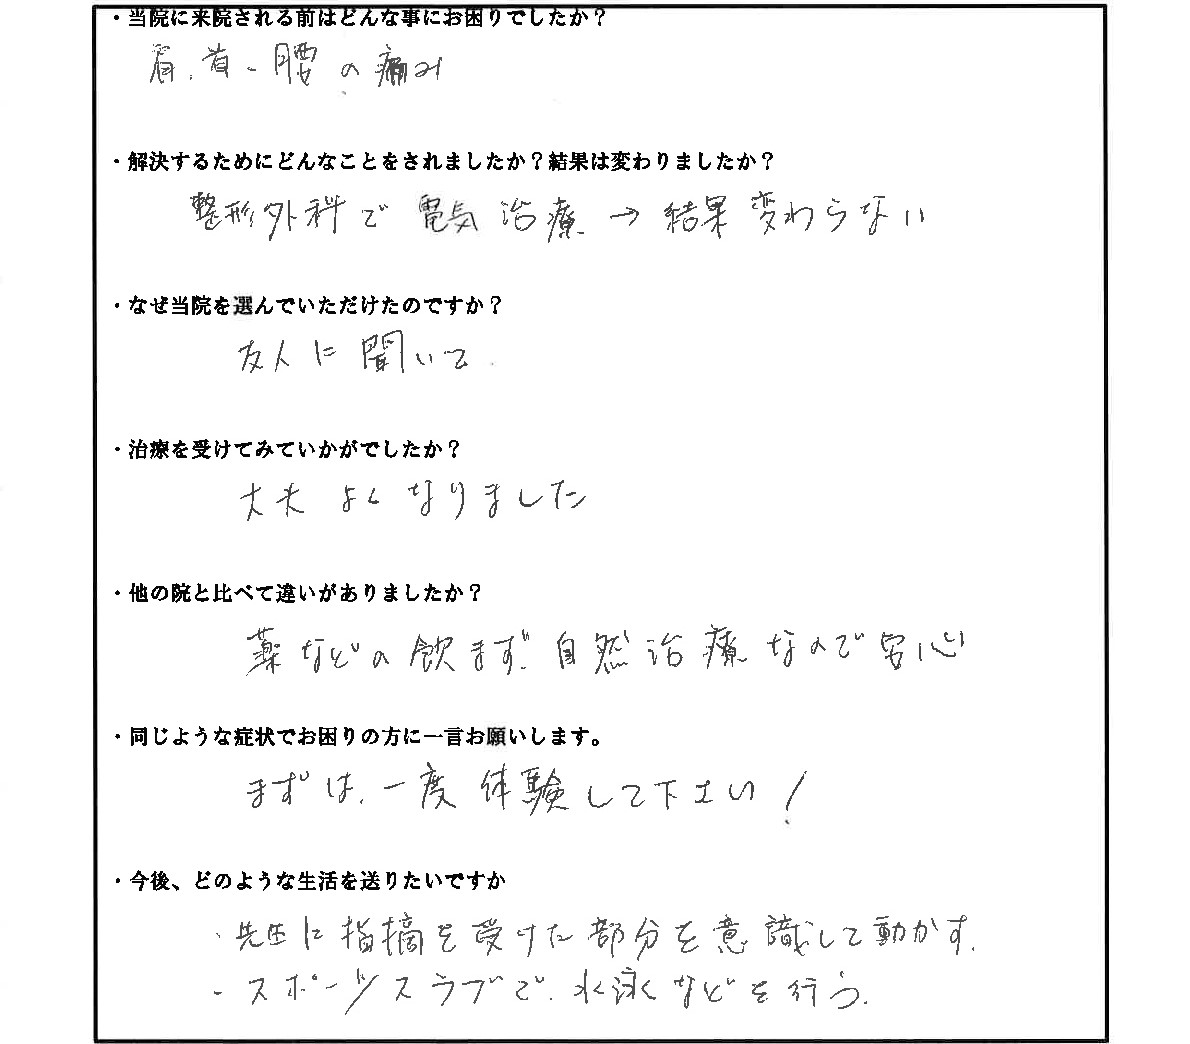 ・当院に来院される前はどんな事にお困りでしたか？
肩、首、腰の痛み
・解決するためにどんなことをされましたか？結果は変わりましたか？
整形外科で電気治療→結果変わらない
・なぜ当院を選んでいただけたのですか？
友人に聞いて
・治療を受けてみていかがでしたか？
大夫よくなりました
・他の院と比べて違いがありましたか？
薬などの飲まず、自然治療なので安心
・同じような症状でお困りの方に一言お願いします。
まずは、一度体験して下さい！
・今後、どのような生活を送りたいですか
・先生に指摘を受けた部分を意識して動かす。
・スポーツスラブで、水泳などを行う。